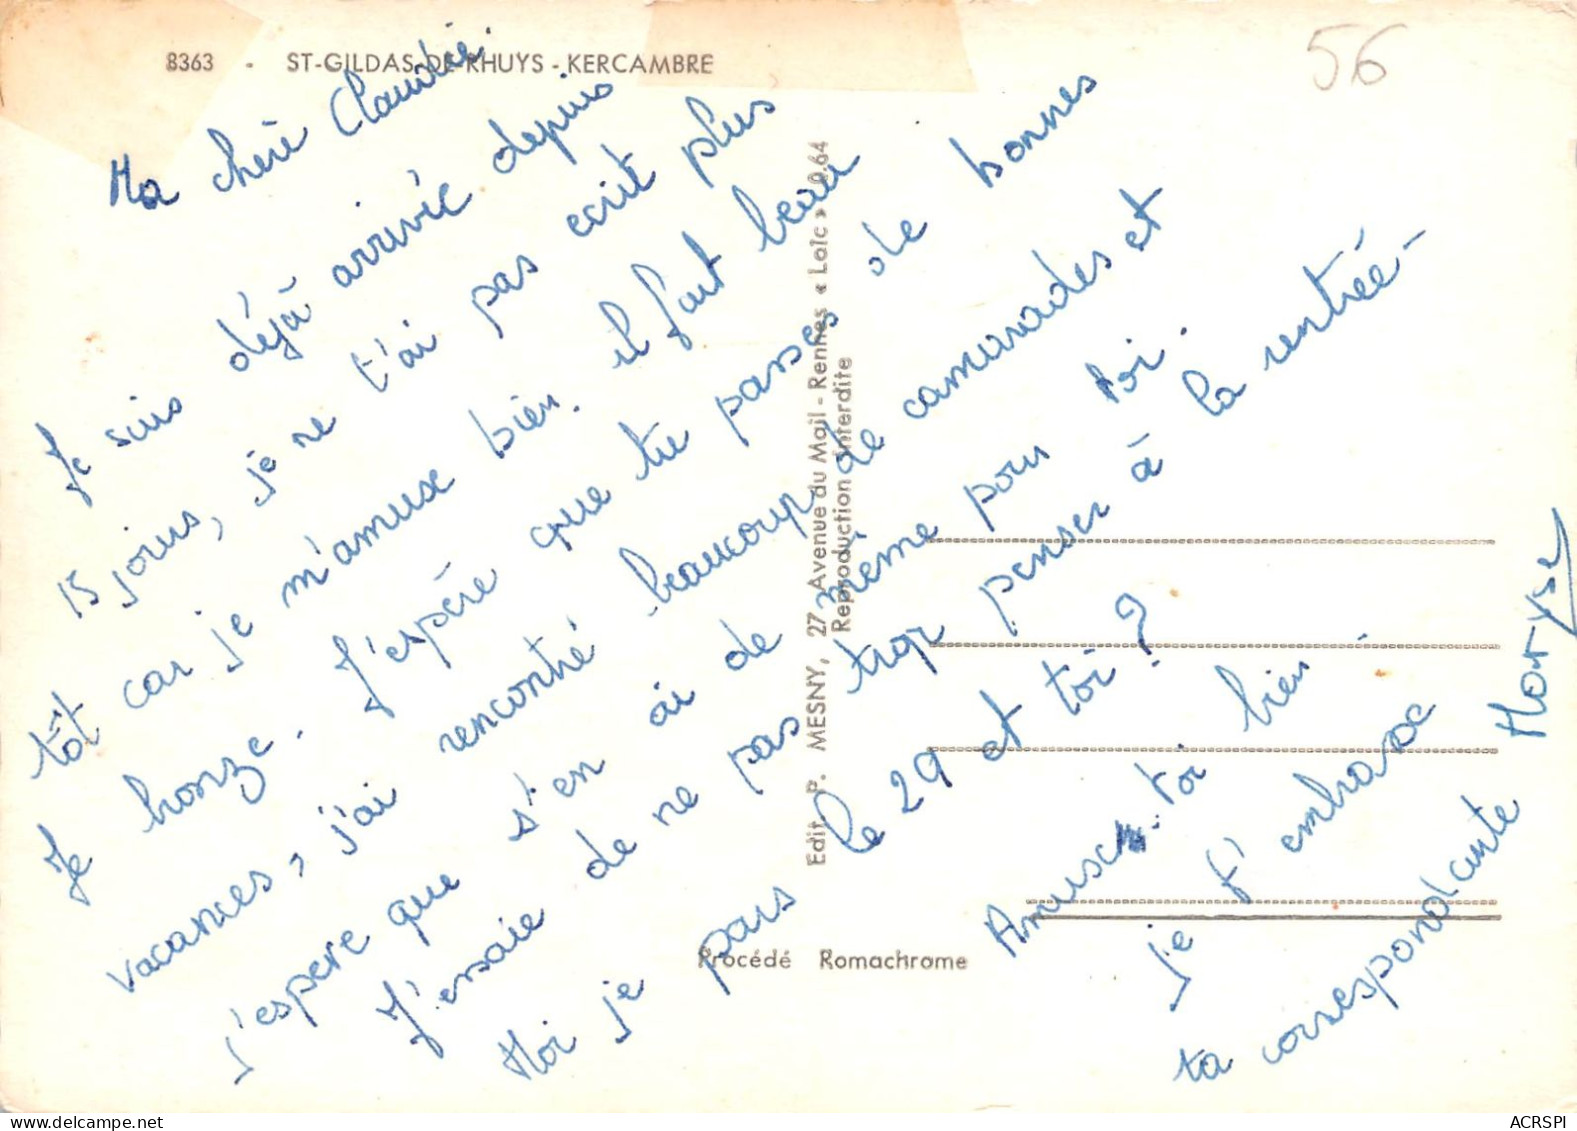 8363 - ST-GILDAS-DE-RHUYS - KERCAMBRE
56
Ma chère Claudie.
Je suis déjà arrivée depuis
15 jours, je ne t'ai pas ecrit plus
tôt car je m'amuse bien. il fait beau
Je bronze. J'espère que tu passes de bonnes
vacances, j'ai rencontré beaucoup de camarades et
j'espere que s'en ai de même pour toi.
J'essaie de ne pas trop penser à la rentrée-
Moi je pars le 29 et toi ?
Amuse-toi bien
je t'embrasse
ta correspondante Maryse
Edit. P. MESNY, 27 Avenue du Mail - Rennes « Loïc » 0.64
Reproduction Interdite
Procédé Romachrome
www.delcampe.net
ACRSPI